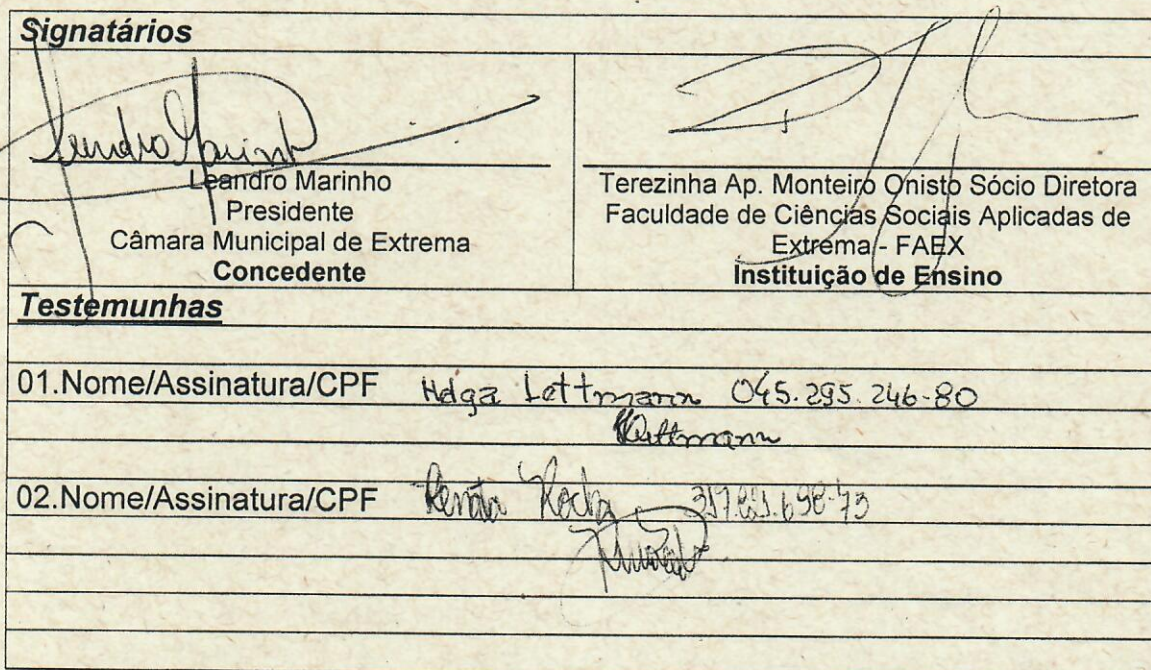 Signatários
Leandro Marinho
Leandro Marinho
Presidente
Câmara Municipal de Extrema
Concedente
Terezinha Ap. Monteiro Onisto Sócio Diretora
Faculdade de Ciências Sociais Aplicadas de
Extrema - FAEX
Instituição de Ensino
Testemunhas
01.Nome/Assinatura/CPF Helga Lettmann 045.295.246-80
02.Nome/Assinatura/CPF Renata Rocha